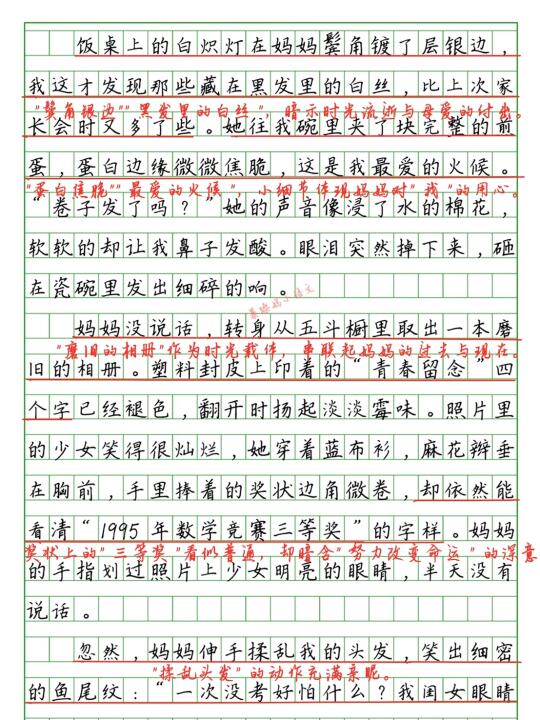 饭桌上的白炽灯在妈妈鬓角镀了层银边，
我这才发现那些藏在黑发里的白丝，比上次家
"鬓角银边""黑发里的白丝"，暗示时光流逝与母爱的付出。
长会时又多了些。她往我碗里夹了块完整的煎
蛋，蛋白边缘微微焦脆，这是我最爱的火候。
"蛋白焦脆""最爱的火候"，小细节体现妈妈对"我"的用心。
“卷子发了吗？”她的声音像浸了水的棉花，
软软的却让我鼻子发酸。眼泪突然掉下来，砸
在瓷碗里发出细碎的响。
妈妈没说话，转身从五斗橱里取出一本磨
"磨旧的相册"作为时光载体，串联起妈妈的过去与现在。
旧的相册。塑料封皮上印着的“青春留念”四
个字已经褪色，翻开时扬起淡淡霉味。照片里
的少女笑得很灿烂，她穿着蓝布衫，麻花辫垂
在胸前，手里捧着的奖状边角微卷，却依然能
看清“1995年数学竞赛三等奖”的字样。妈妈
奖状上的"三等奖"看似普通，却暗含"努力改变命运"的深意
的手指划过照片上少女明亮的眼睛，半天没有
说话。
忽然，妈妈伸手揉乱我的头发，笑出细密
"揉乱头发"的动作充满亲昵。
的鱼尾纹：“一次没考好怕什么？我闺女眼睛